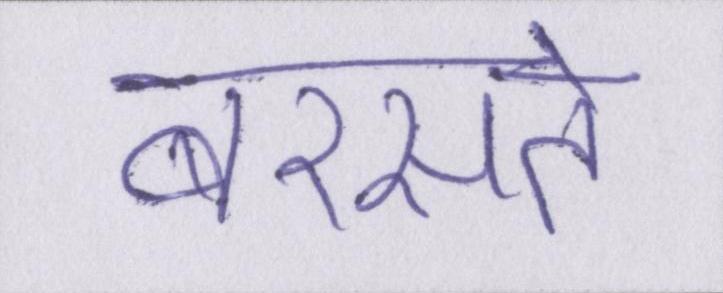 बरसते